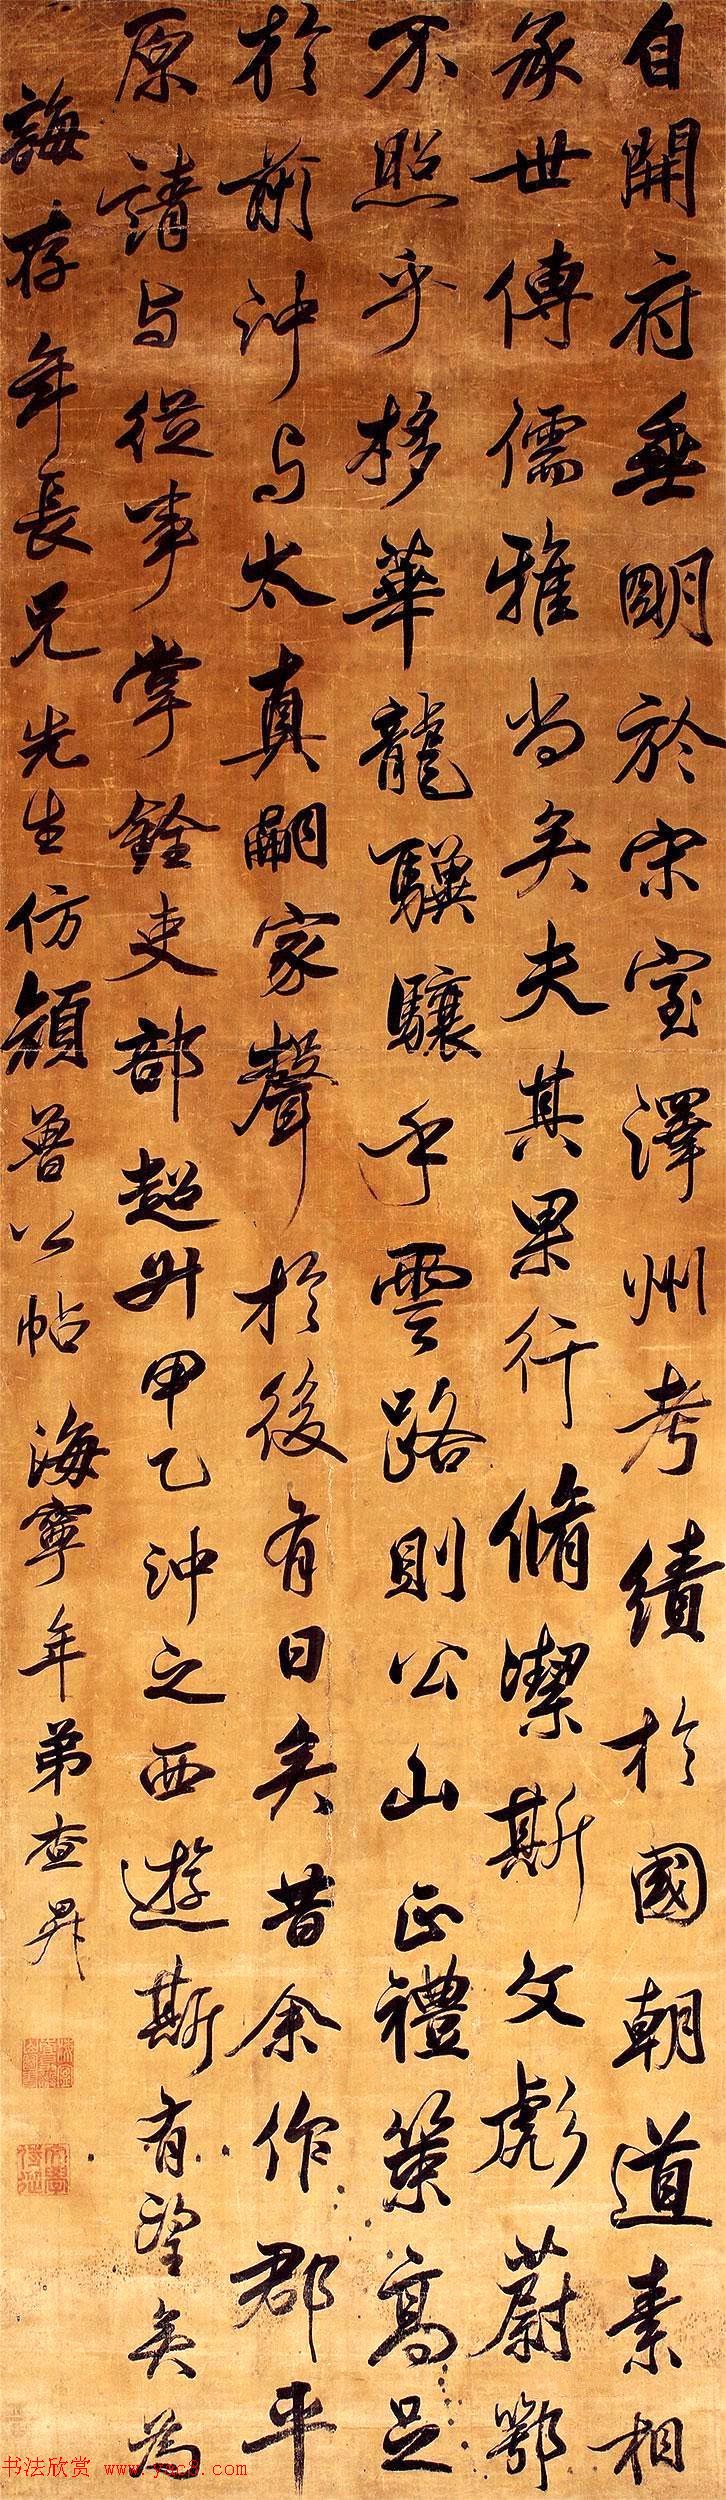 自開府垂朙於宋室澤州考績於國朝道素相
承世傳儒雅尚矣夫其果行脩潔斯文彪蔚鄂
不照乎栘華龍驥驤乎雲路則公山正禮策高足
於前沖与太真嗣家聲於後有日矣昔余作郡平
原請与從事掌銓吏部超升甲乙沖之西遊斯有望矣為
誨存年長兄先生仿顏魯公帖 海寧年弟查昇
书法欣赏 www.yac8.com